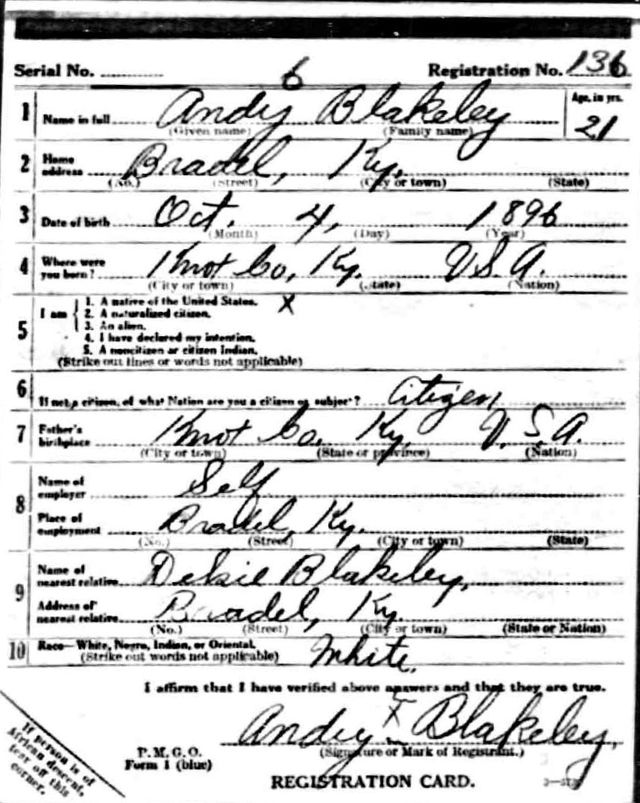 Serial No. 6 Registration No. 136
1 Name in full Andy Blakeley Age, in yrs. 21
(Given name) (Family name)
2 Home address Bradel, Ky.
(No.) (Street) (City or town) (State)
3 Date of birth Oct. 4, 1896
(Month) (Day) (Year)
4 Where were you born? Knot Co, Ky. U.S.A.
(City or town) (State) (Nation)
5 I am
1. A native of the United States. X
2. A naturalized citizen.
3. An alien.
4. I have declared my intention.
5. A noncitizen or citizen Indian.
(Strike out lines or words not applicable)
6 If not a citizen, of what Nation are you a citizen or subject? Citizen
7 Father's birthplace Knot Co. Ky. U.S.A.
(City or town) (State or province) (Nation)
8 Name of employer Self
Place of employment Bradel, Ky.
(No.) (Street) (City or town) (State)
9 Name of nearest relative Dekie Blakeley,
Address of nearest relative Bradel, Ky.
(No.) (Street) (City or town) (State or Nation)
10 Race—White, Negro, Indian, or Oriental. White.
(Strike out words not applicable)
I affirm that I have verified above answers and that they are true.
Andy X Blakeley,
P. M. G. O. (Signature or Mark of Registrant.)
Form 1 (blue)
REGISTRATION CARD.
If person is of
African descent,
tear off this
corner.